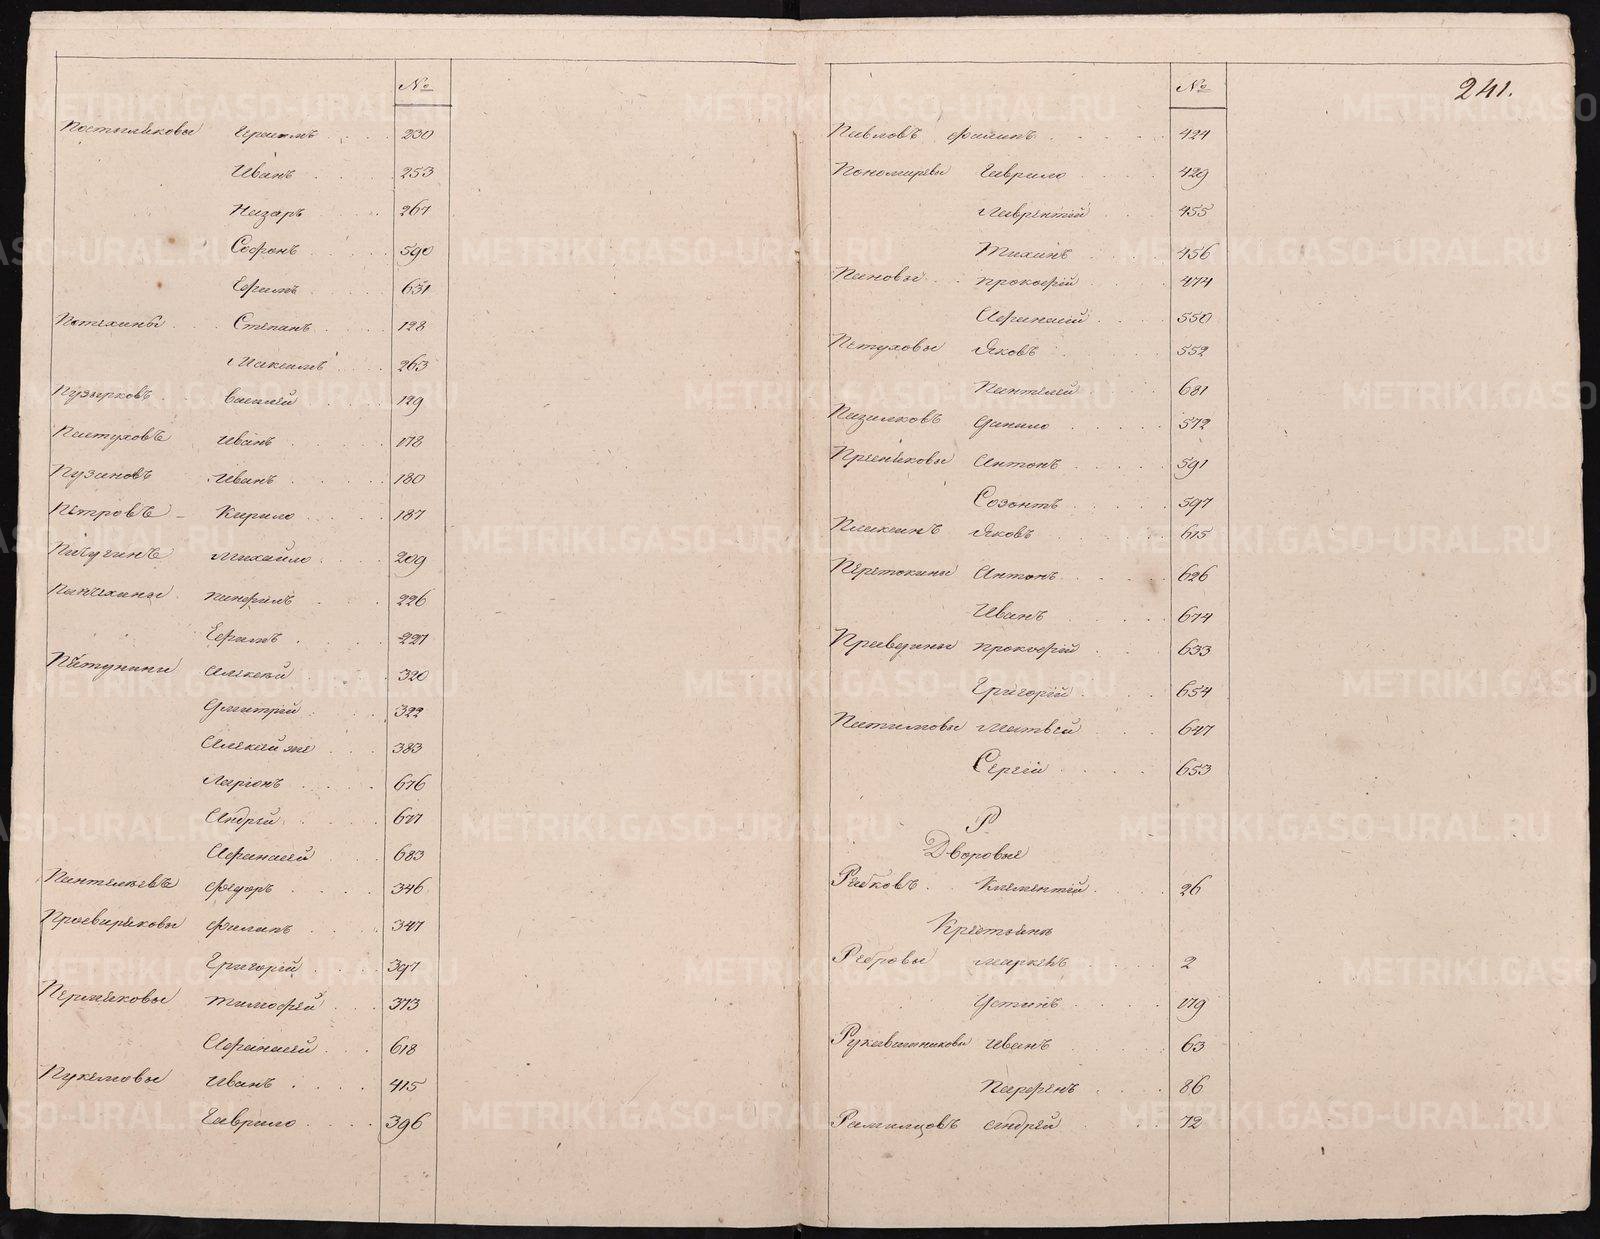 №
Постыляковы Ефимъ 230
Иванъ 253
Назаръ 267
Софонъ 590
Ефимъ 651
Потехины Степанъ 128
Максимъ 263
Пузырковъ Василей 129
Пастуховъ Иванъ 178
Пузановъ Иванъ 180
Петровъ Кирило 187
Пичугинъ Михайло 209
Панехины Панфилъ 226
Ефимъ 227
Петунины Алексей 320
Дмитрій 322
Алексей же 383
Ларіонъ 676
Андрей 677
Афанасей 683
Пантелеевъ Федоръ 346
Просвиряковы Филипъ 347
Григорій 397
Пермяковы Тимофей 373
Афанасей 618
Пукемовы Иванъ 415
Гаврило 396
№
241.
Павловъ Филипъ 424
Пономаревы Гаврило 429
Лаврентій 455
Тихинъ 456
Пановы Прокофій 474
Афанасій 550
Петуховы Яковъ 552
Пантелей 681
Пазилковъ Данило 572
Пряниковы Антонъ 591
Созонтъ 597
Плаксинъ Яковъ 615
Перетокины Антонъ 626
Иванъ 674
Праведины Прокофій 633
Григорій 654
Патимовы Матвей 647
Сергей 653
Р
Дворовые
Рябковъ Климентій 26
Крестьяне
Ребровы Маркелъ 2
Устинъ 179
Рукавишниковы Иванъ 63
Парфенъ 86
Рамилцовъ Андрей 72
METRIKI.GASO-URAL.RU